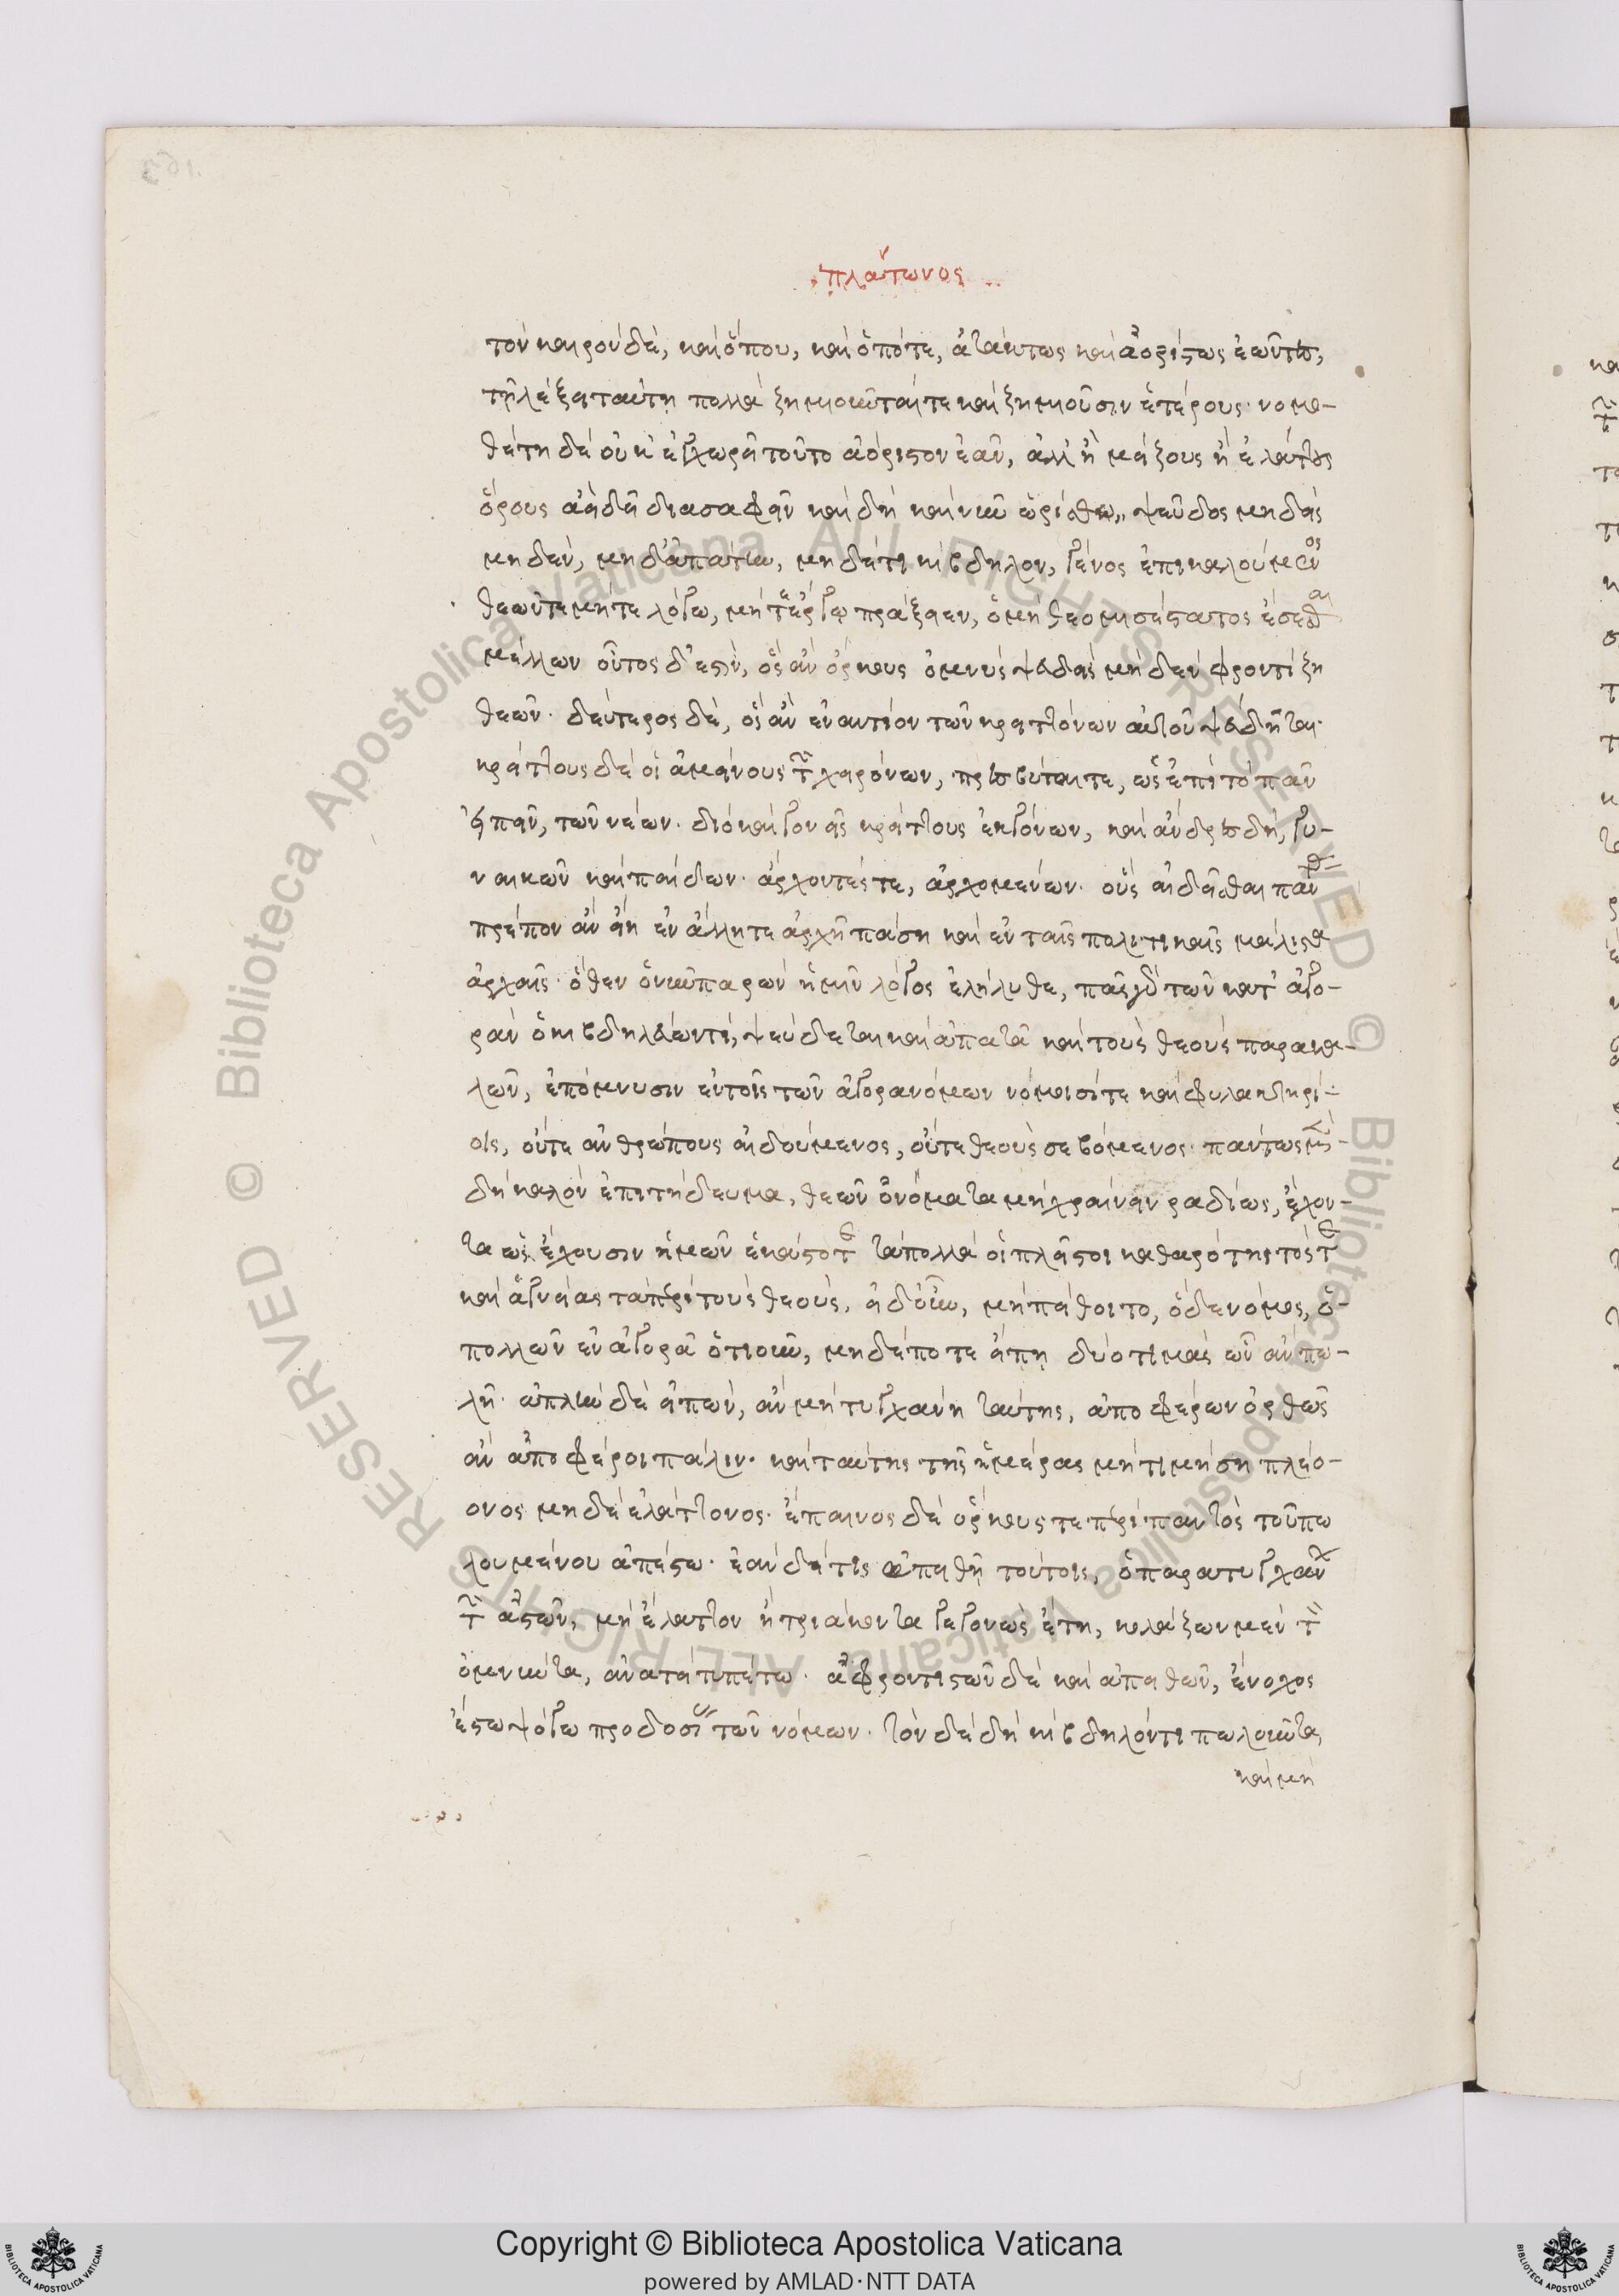 πλάτωνος
τὸν καιρὸν δὲ, καὶ ὅπου, καὶ ὁπότε, ἀτάκτως καὶ ἀορίστως ἐῶντες,
τῇ λέξει ταύτῃ πολλὰ ζημιοῦνταί τε καὶ ζημιοῦσιν ἑτέρους· νομο-
θέτῃ δὲ οὐκ ἐγχωρεῖ τοῦτο ἀόριστον ἐᾶν, ἀλλ' ἢ μείζους ἢ ἐλάττους
ὅρους ἀεὶ δεῖ διασαφεῖν καὶ δὴ καὶ νῦν ὡρίσθω,, ψεῦδος μηδεὶς
μηδὲν, μηδ' ἀπάτην, μηδέ τι κίβδηλον, γένος ἐπικαλούμενος
θεῶν τε μήτε λόγω, μήτε ἔργω πράξειεν, ὁ μὴ θεομισέστατος ἔσεσθαι
μέλλων οὗτος δ' ἐστὶν, ὃς ἂν ὅρκους ὀμνὺς ψευδεῖς μηδὲν φροντίζη
θεῶν· δεύτερος δὲ, ὃς ἂν ἐναντίον τῶν κρειττόνων αὐτοῦ ψεύδηται·
κρείττους δὲ οἱ ἀμείνους τῶν χειρόνων, πρεσβῦταί τε, ὡς ἐπὶ τὸ πᾶν
εἰπεῖν, τῶν νέων· διὸ καὶ γονεῖς κρείττους ἐκγόνων, καὶ ἄνδρες δὴ, γυ-
ναικῶν καὶ παίδων· ἄρχοντές τε, ἀρχομένων· οὓς αἰδεῖσθαι πᾶσιν
πρέπον ἂν εἴη ἐν ἄλλη τε ἀρχῇ πάση καὶ ἐν ταῖς πολιτικαῖς μάλιστα
ἀρχαῖς· ὅθεν ὁ νῦν παρὼν ἡμῖν λόγος ἐλήλυθε, πᾶς γὰρ τῶν κατ' ἀγο-
ρὰν ὁ κιβδηλεύων τι, ψεύδεται καὶ ἀπατᾶ καὶ τοὺς θεοὺς παρακα-
λῶν, ἐπόμνυσιν ἐν τοῖς τῶν ἀγορανόμων νόμοισί τε καὶ φυλακτηρί-
οις, οὔτε ἀνθρώπους αἰδούμενος, οὔτε θεοὺς σεβόμενος· πάντως μὲν
δὴ καλὸν ἐπιτήδευμα, θεῶν ὀνόματα μὴ χραίνειν ῥαδίως, ἔχον-
τα ὡς ἔχουσιν ἡμῶν ἑκάστοτε τὰ πολλὰ οἱ πλεῖστοι καθαρότητός τε
καὶ ἁγνείας τὰ περὶ τοὺς θεοὺς, εἰ δ' οὖν, μὴ πάθοιτο, ὅδε νόμος, ὁ
πωλῶν ἐν ἀγορᾶ ὁτιοῦν, μηδέποτε εἴπη δύο τιμὰς ὧν ἂν πω-
λῇ· ἁπλῆν δὲ εἰπὼν, ἂν μὴ τυγχάνη ταύτης, ἀποφέρων ὀρθῶς
ἂν ἀποφέροι πάλιν· καὶ ταύτης τῆς ἡμέρας μὴ τιμήση πλέο-
ονος μηδὲ ἐλάττονος· ἔπαινος δὲ ὅρκους τε περὶ παντὸς τοῦ πω
λουμένου ἀπέστω· ἐὰν δέ τις ἀπειθῇ τούτοις, ὁ παρατυγχάνων
τῶν ἀστῶν, μὴ ἔλαττον ἢ τριάκοντα γεγονὼς ἔτη, κολάζων μὲν τὸν
ὀμνῦντα, ἀνατεὶ τυπτέτω· ἀφροντιστῶν δὲ καὶ ἀπειθῶν, ἔνοχος
ἔστω ψόγω προδοσίας τῶν νόμων· τὸν δὲ δὴ κίβδηλόν τι πωλοῦντα,
καὶ μὴ
Copyright © Biblioteca Apostolica Vaticana
powered by AMLAD·NTT DATA